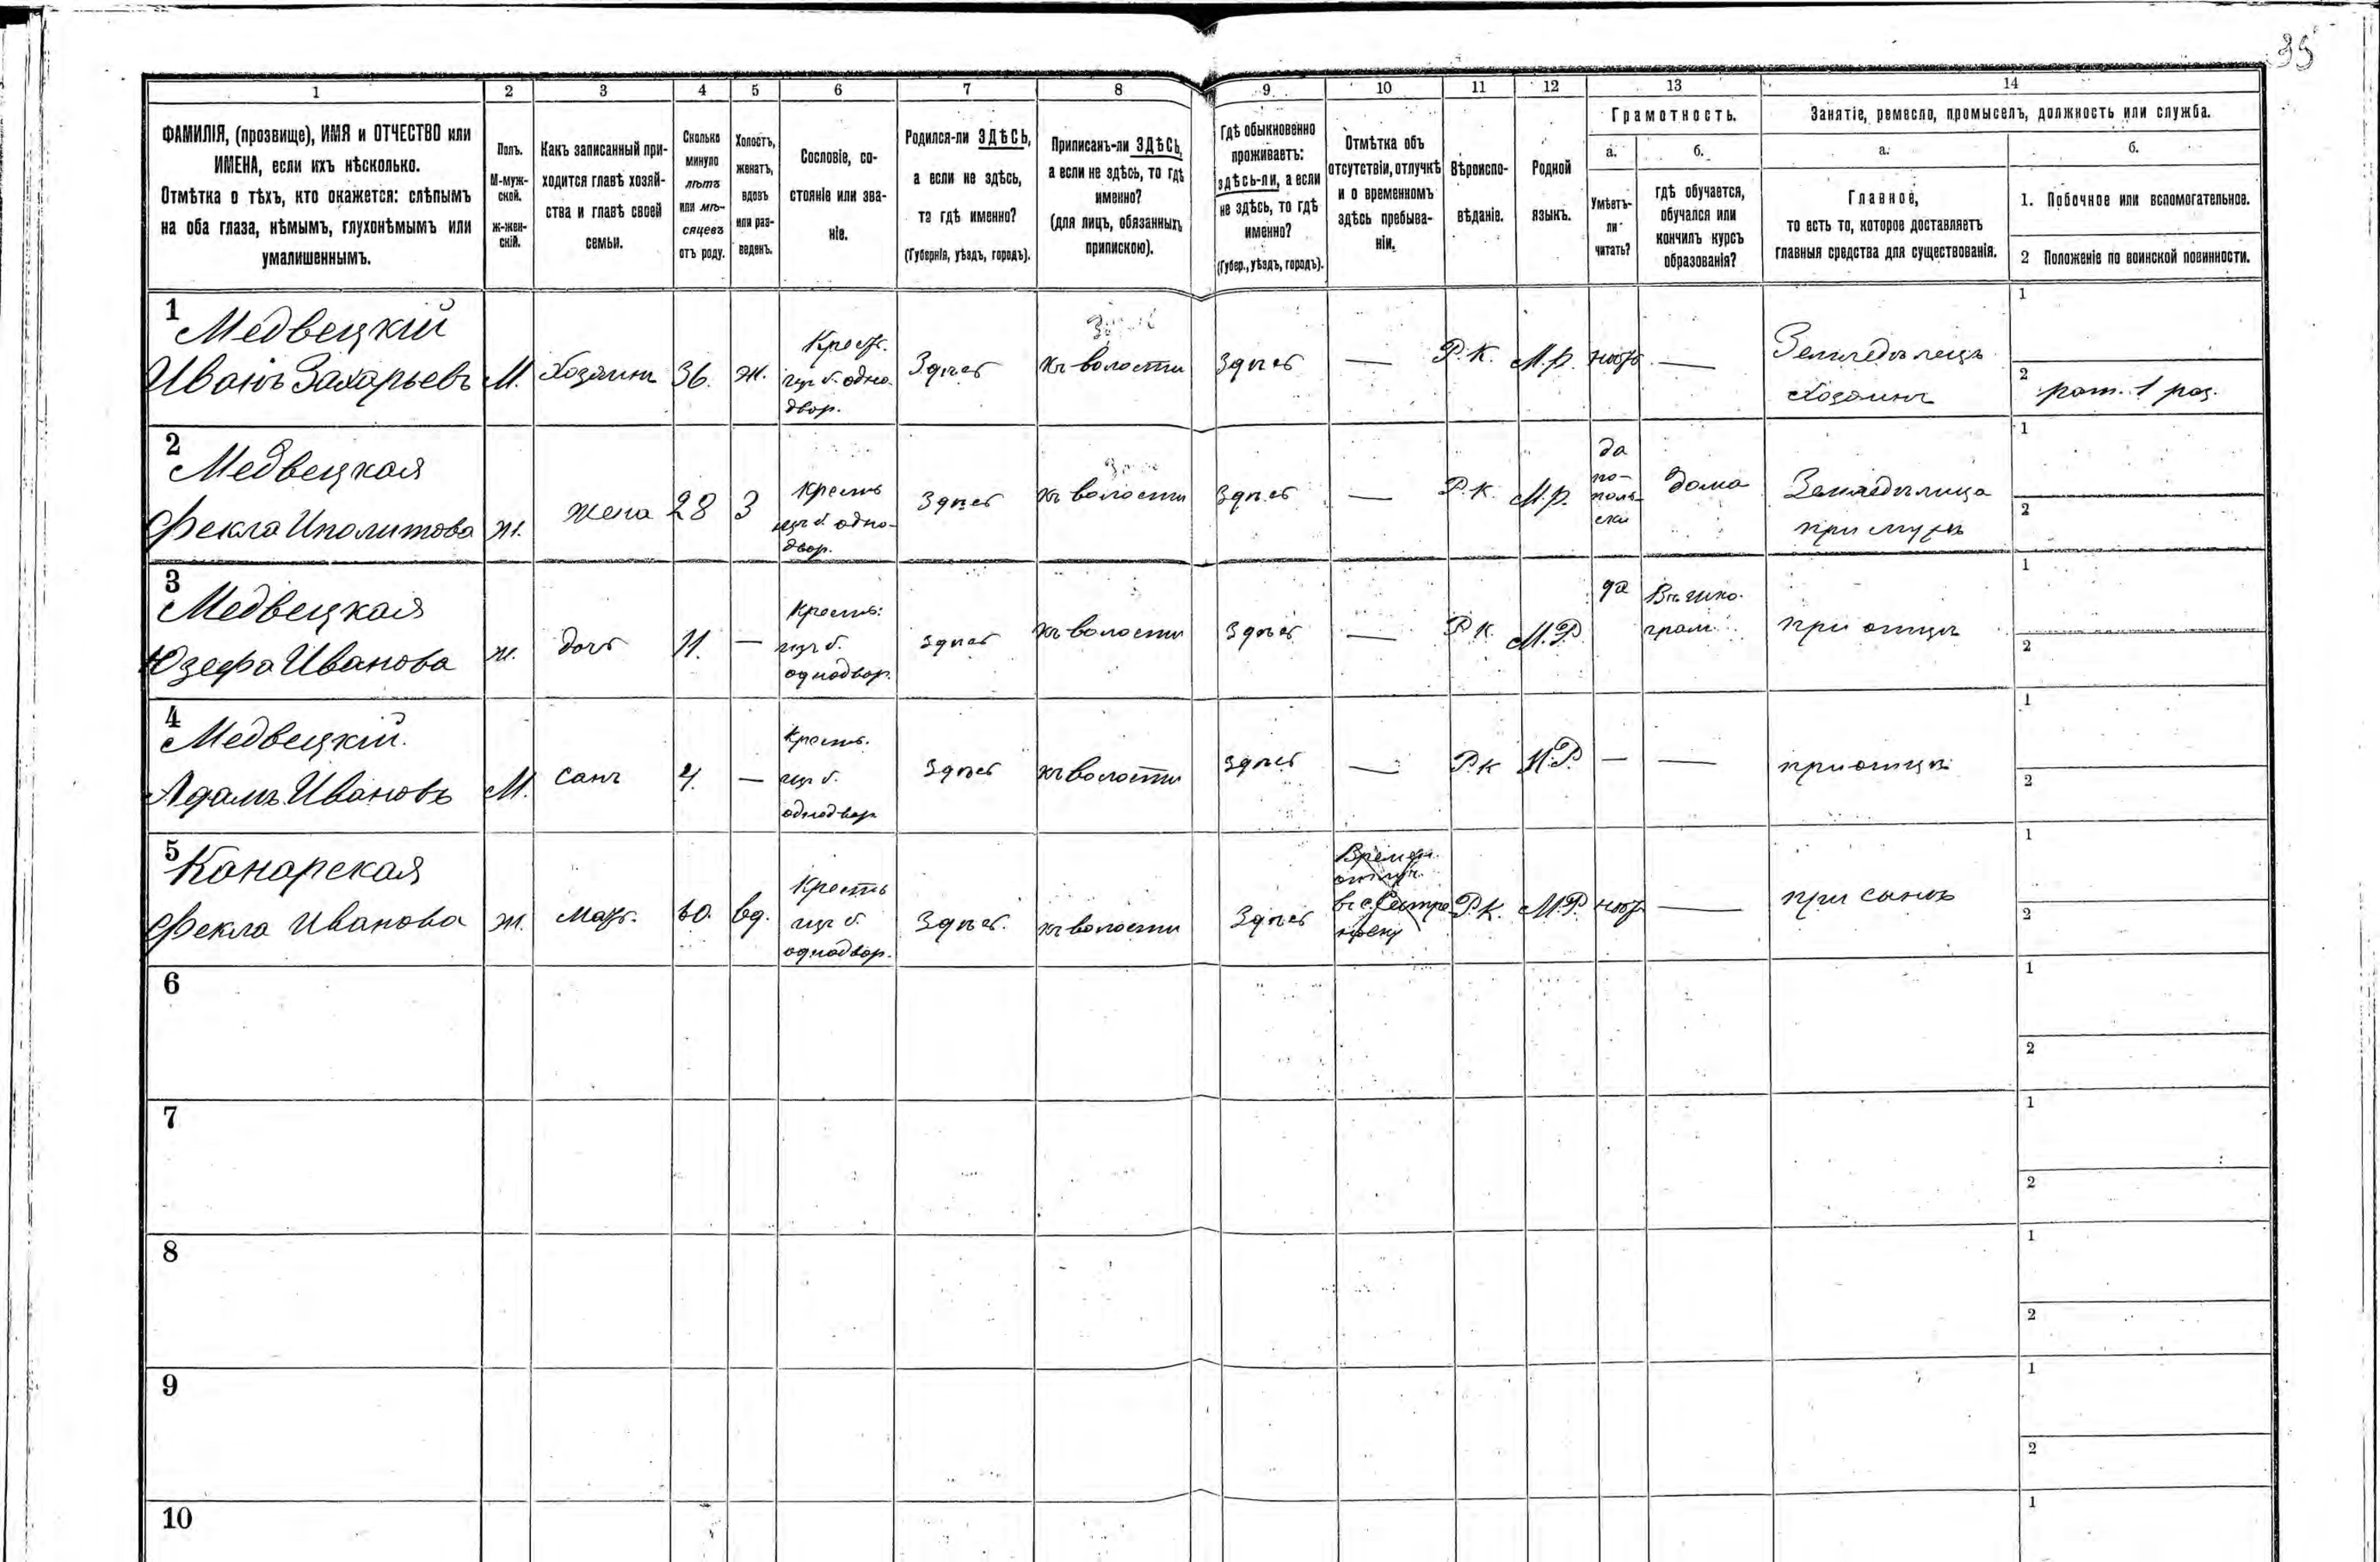 35
1 2 3 4 5 6 7 8 9 10 11 12 13 14
ФАМИЛІЯ, (прозвище), ИМЯ и ОТЧЕСТВО или
ИМЕНА, если ихъ нѣсколько.
Отмѣтка о тѣхъ, кто окажется: слѣпымъ
на оба глаза, нѣмымъ, глухонѣмымъ или
умалишеннымъ.
Полъ.
М-муж-
ской.
Ж-жен-
скій.
Какъ записанный при-
ходится главѣ хозяй-
ства и главѣ своей
семьи.
Сколько
минуло
лѣтъ
или мѣ-
сяцевъ
отъ роду.
Холостъ,
женатъ,
вдовъ
или раз-
веденъ.
Сословіе, со-
стояніе или зва-
ніе.
Родился-ли ЗДѢСЬ,
а если не здѣсь,
то гдѣ именно?
(Губернія, уѣздъ, городъ).
Приписанъ-ли ЗДѢСЬ,
а если не здѣсь, то гдѣ
именно?
(для лицъ, обязанныхъ
припискою).
Гдѣ обыкновенно
проживаетъ:
здѣсь-ли, а если
не здѣсь, то гдѣ
именно?
(Губер., уѣздъ, городъ).
Отмѣтка объ
отсутствіи, отлучкѣ
и о временномъ
здѣсь пребыва-
ніи.
Вѣроиспо-
вѣданіе.
Родной
языкъ.
Грамотность.
а.
Умѣетъ-
ли
читать?
б.
гдѣ обучается,
обучался или
кончилъ курсъ
образованія?
Занятіе, ремесло, промыселъ, должность или служба.
а.
Главное,
то есть то, которое доставляетъ
главныя средства для существованія.
б.
1. Побочное или вспомогательное.
2 Положеніе по воинской повинности.
1
Медвецкій
Иванъ Захарьевъ
М.
Хозяинъ
36.
ж.
Крест.
изъ б. одно-
двор.
Здѣсь
къ волости
Здѣсь
—
Р. К.
М. р.
нѣтъ
—
Земледѣлецъ
Хозяинъ
1
2
рат. 1 раз.
2
Медвецкая
Фекла Иполитова
ж.
жена
28
З
Кресть
изъ б. одно-
двор.
Здѣсь
къ волости
Здѣсь
—
Р. К.
М. р.
да
по-
поль-
ски
дома
Земледѣлица
при мужѣ
1
2
3
Медвецкая
Юзефа Иванова
ж.
дочь
11.
—
Кресть.
изъ б.
однодвор.
здѣсь
къ волости
Здѣсь
—
Р. К.
М. Р.
да
Въ шко.
грам.
при отцѣ
1
2
4
Медвецкій.
Адамъ Ивановъ
М.
сынъ
4.
—
Кресть.
изъ б.
однодвор
Здѣсь
къ волости
Здѣсь
—
Р. К
М. Р.
—
—
при отцѣ
1
2
5
Канарская
Фекла Иванова
ж.
Мать.
60.
вд.
Кресть
изъ б.
однодвор.
Здѣсь.
къ волости
Здѣсь
Времен.
отлуч.
Р. К.
М. Р.
нѣтъ
—
при сынѣ
1
2
6
1
2
7
1
2
8
1
2
9
1
2
10
1